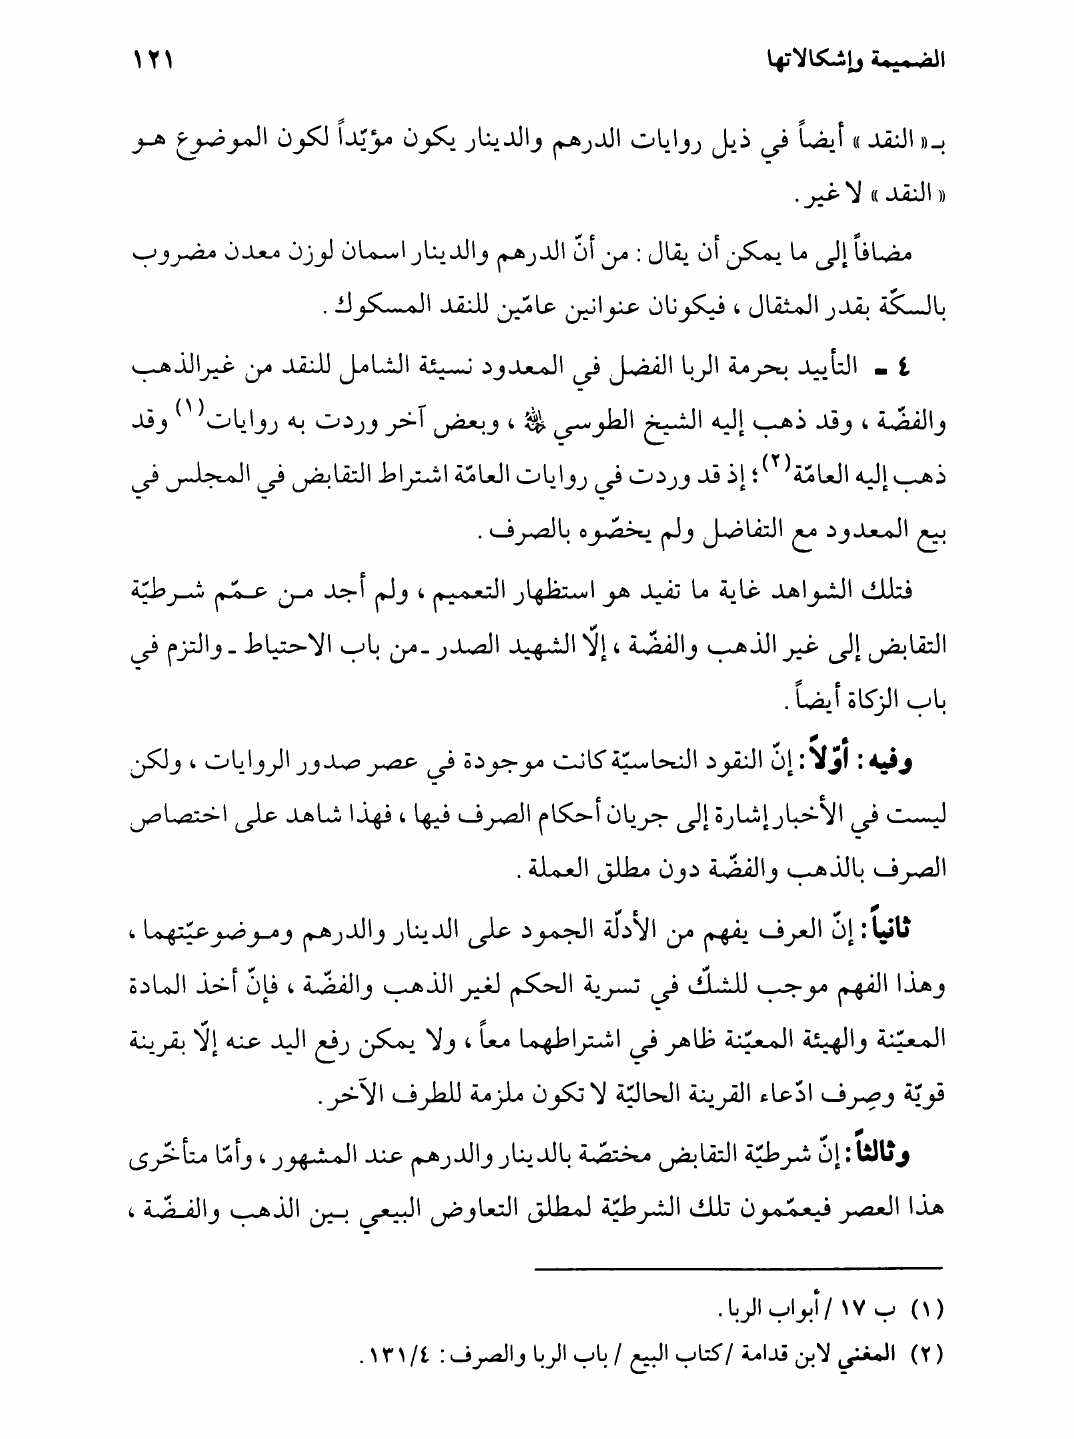 الضميمة وإشكالاتها ١٢١
بـ« النقد » أيضاً في ذيل روايات الدرهم والدينار يكون مؤيّداً لكون الموضوع هـو
« النقد » لا غير .
مضافاً إلى ما يمكن أن يقال : من أنّ الدرهم والدينار اسمان لوزن معدن مضروب
بالسكّة بقدر المثقال ، فيكونان عنوانين عامّين للنقد المسكوك .
٤ - التأييد بحرمة الربا الفضل في المعدود نسيئة الشامل للنقد من غيرالذهب
والفضّة ، وقد ذهب إليه الشيخ الطوسي ﷲ ، وبعض آخر وردت به روايات(١) وقد
ذهب إليه العامّة(٢)؛ إذ قد وردت في روايات العامّة اشتراط التقابض في المجلس في
بيع المعدود مع التفاضل ولم يخصّوه بالصرف .
فتلك الشواهد غاية ما تفيد هو استظهار التعميم ، ولم أجد مـن عـمّم شـرطيّة
التقابض إلى غير الذهب والفضّة ، إلّا الشهيد الصدر ـ من باب الاحتياط ـ والتزم في
باب الزكاة أيضاً .
وفيه : أوّلاً : إنّ النقود النحاسيّة كانت موجودة في عصر صدور الروايات ، ولكن
ليست في الأخبار إشارة إلى جريان أحكام الصرف فيها ، فهذا شاهد على اختصاص
الصرف بالذهب والفضّة دون مطلق العملة .
ثانياً : إنّ العرف يفهم من الأدلّة الجمود على الدينار والدرهم ومـوضوعيّتهما ،
وهذا الفهم موجب للشكّ في تسرية الحكم لغير الذهب والفضّة ، فإنّ أخذ المادة
المعيّنة والهيئة المعيّنة ظاهر في اشتراطهما معاً ، ولا يمكن رفع اليد عنه إلّا بقرينة
قويّة وصِرف ادّعاء القرينة الحاليّة لا تكون ملزمة للطرف الآخر .
وثالثاً : إنّ شرطيّة التقابض مختصّة بالدينار والدرهم عند المشهور ، وأمّا متأخّرى
هذا العصر فيعمّمون تلك الشرطيّة لمطلق التعاوض البيعي بـين الذهب والفـضّة ،
(١) ب ١٧ / أبواب الربا .
(٢) المغني لابن قدامة / كتاب البيع / باب الربا والصرف : ١٣١/٤ .